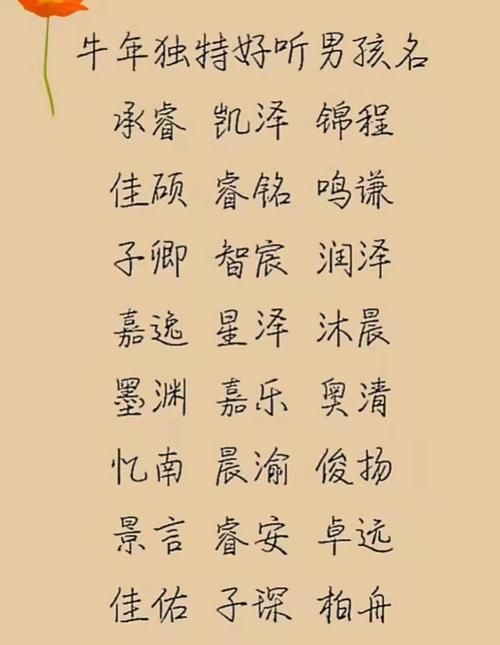 牛年独特好听男孩名
承睿 凯泽 锦程
佳硕 睿铭 鸣谦
子卿 智宸 润泽
嘉逸 星泽 沐晨
墨渊 嘉乐 奥清
忆南 晨渝 俊扬
景言 睿安 卓远
佳佑 子琛 柏舟